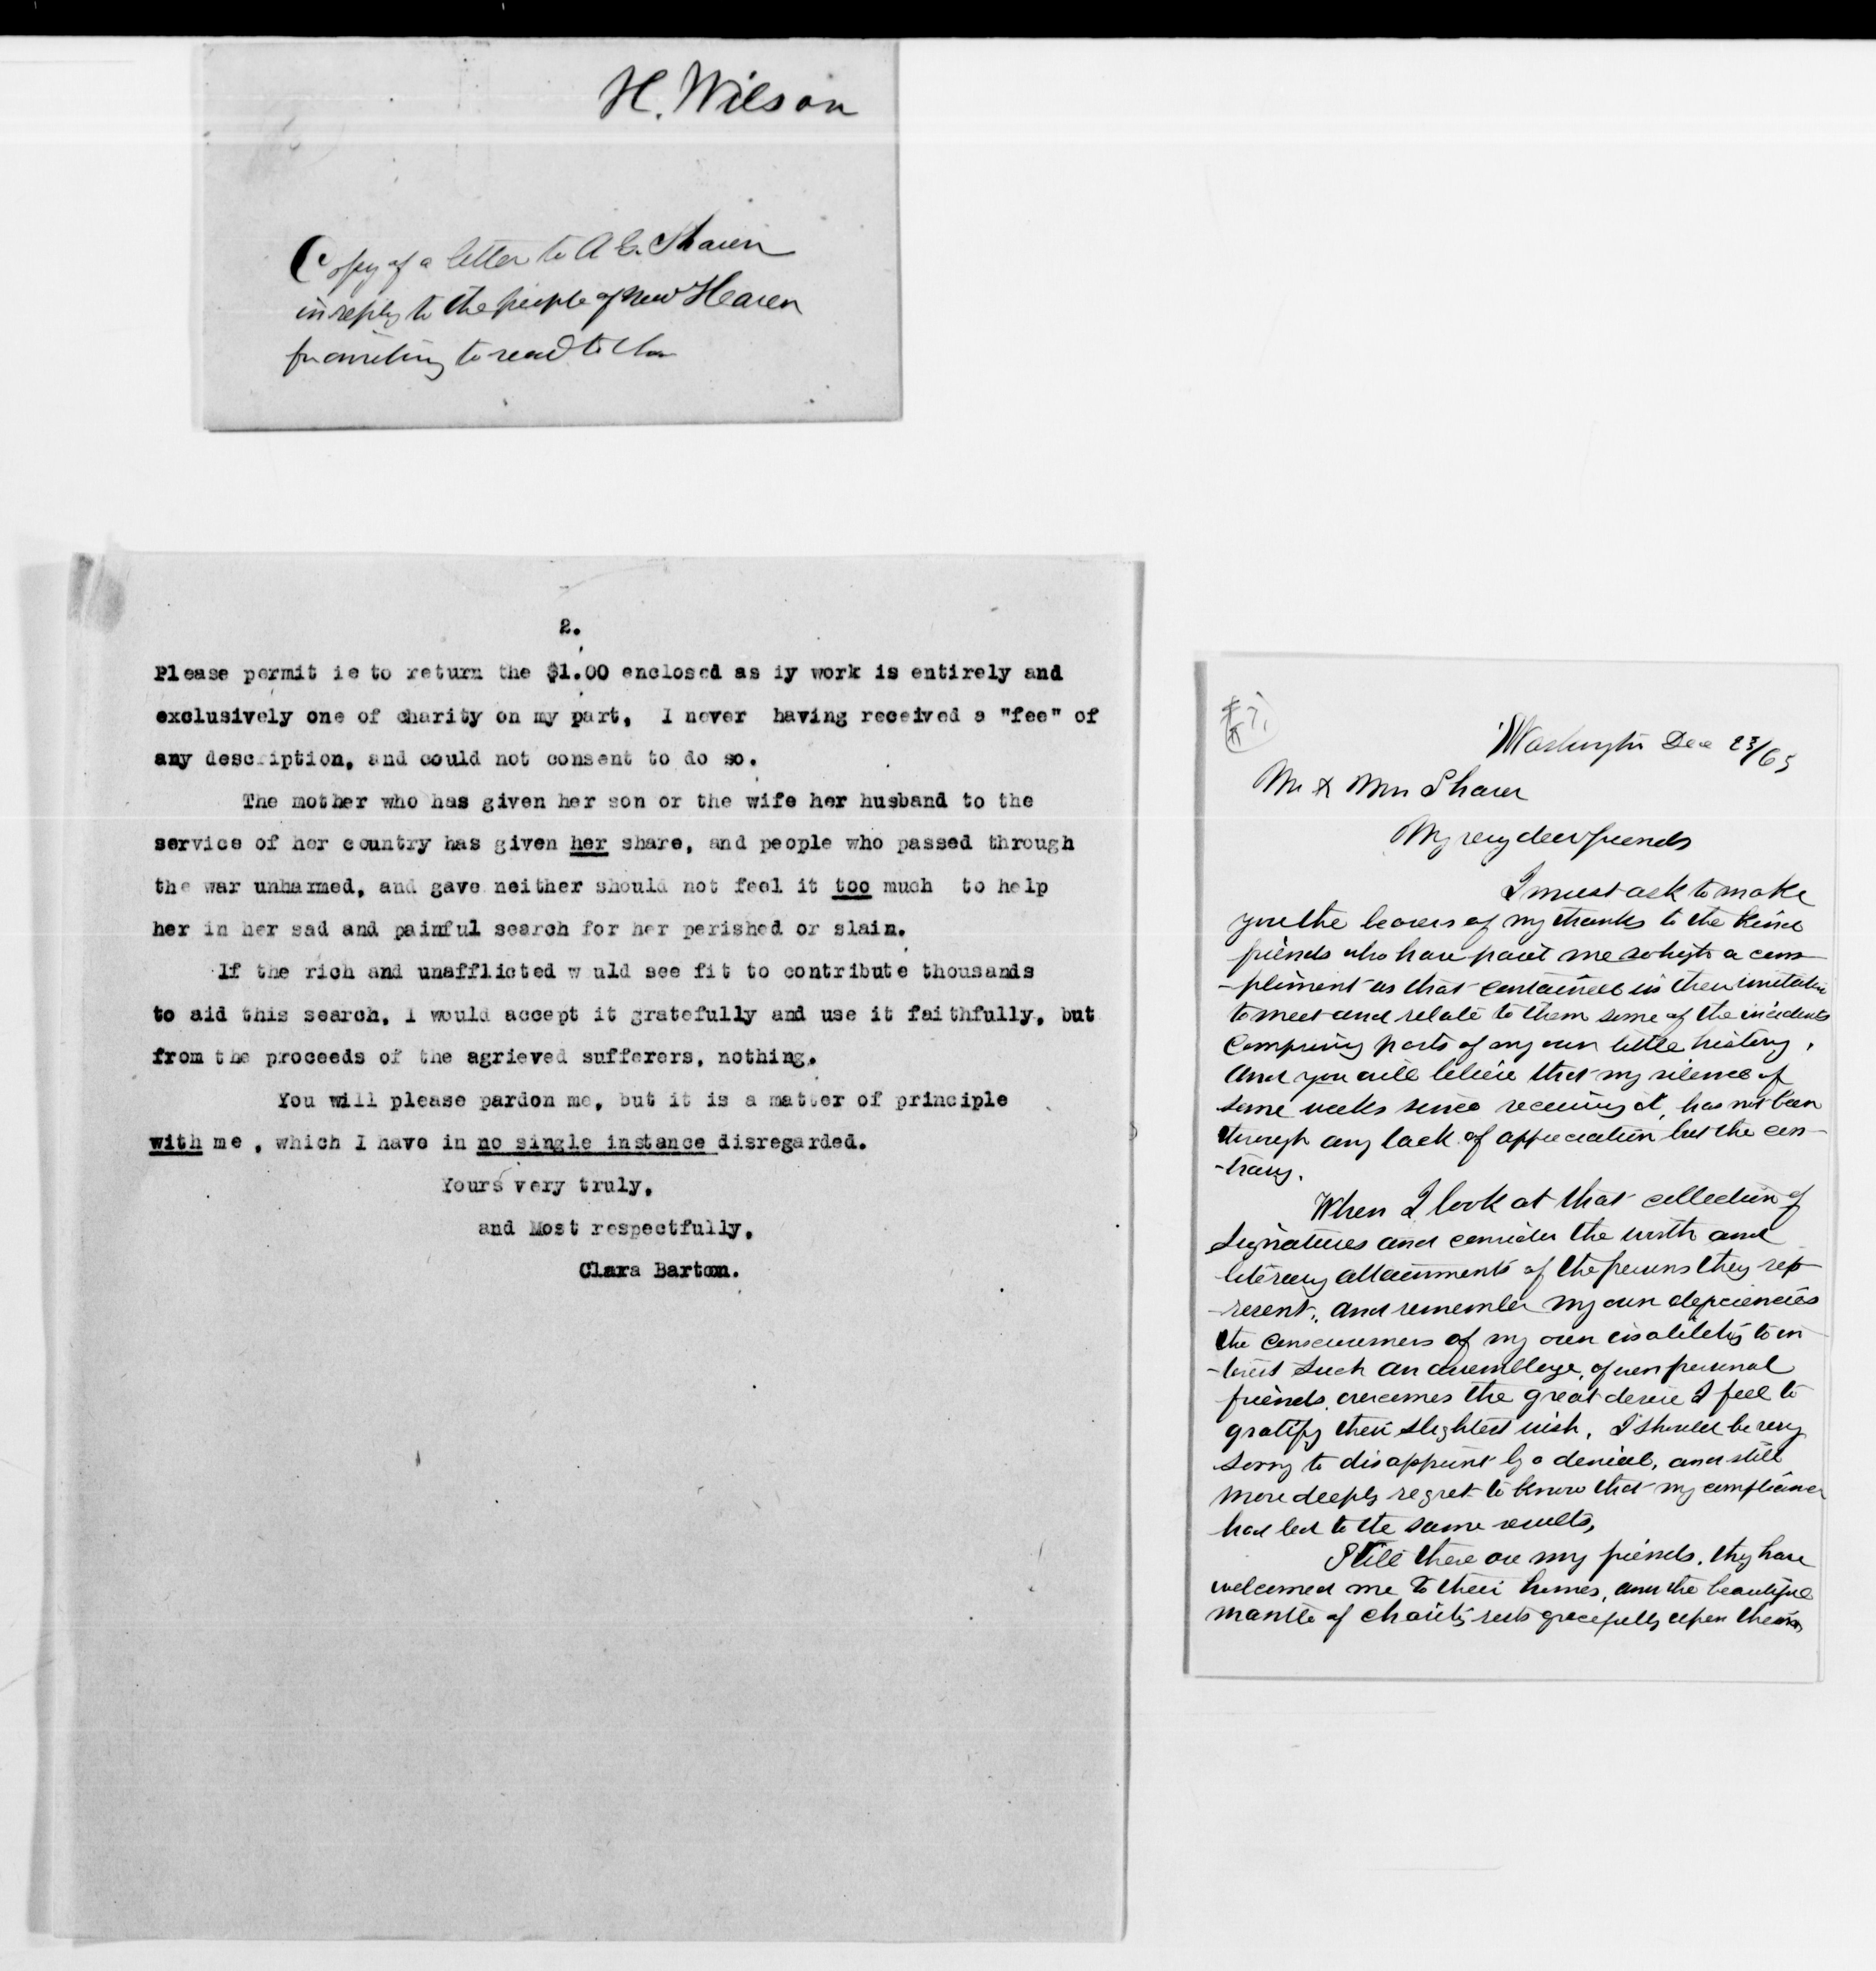 H. Wilson
Copy of a letter to A E. Shaver
in reply to the people of New Haven
inviting to read to
2.
Please permit ie to return the $1.00 enclosed as iy work is entirely and
exclusively one of charity on my part, I never having received s "fee" of
any description, and could not consent to do so.
The mother who has given her son or the wife her husband to the
service of her country has given her share, and people who passed through
the war unharmed, and gave neither should not feel it too much to help
her in her sad and painful search for her perished or slain.
If the rich and unafflicted w uld see fit to contribute thousands
to aid this search, I would accept it gratefully and use it faithfully, but
from the proceeds of the agrieved sufferers, nothing.
You will please pardon me, but it is a matter of principle
with me , which I have in no single instance disregarded.
Yours very truly,
and Most respectfully,
Clara Barton.
Washington Dec 23/65
Mr & Mrs Shaver
My very dear friends
I must ask to make
you the bearers of my thanks to the kind
friends who have paid me so high a com-
-pliment as that contained in their invitation
to meet and relate to them some of the incidents
Comprising parts of my own little history,
And you will believe that my silence of
some weeks since receiving it, has not been
through any lack of appreciation but the con-
-trary.
When I look at that collection of
Signatures and consider the worth and
literary attainments of the persons they rep-
-resent, and remember my own deficiencies
the consciousness of my own inability to in-
-terest such an assemblage, of even personal
friends, overcomes the great desire I feel to
gratify their slightest wish, I should be very
sorry to disappoint by a denial, and still
more deeply regret to know that my compliance
had led to the same results,
Still there are my friends, they have
welcomed me to their homes, and the beautiful
mantle of charity rests gracefully upon them